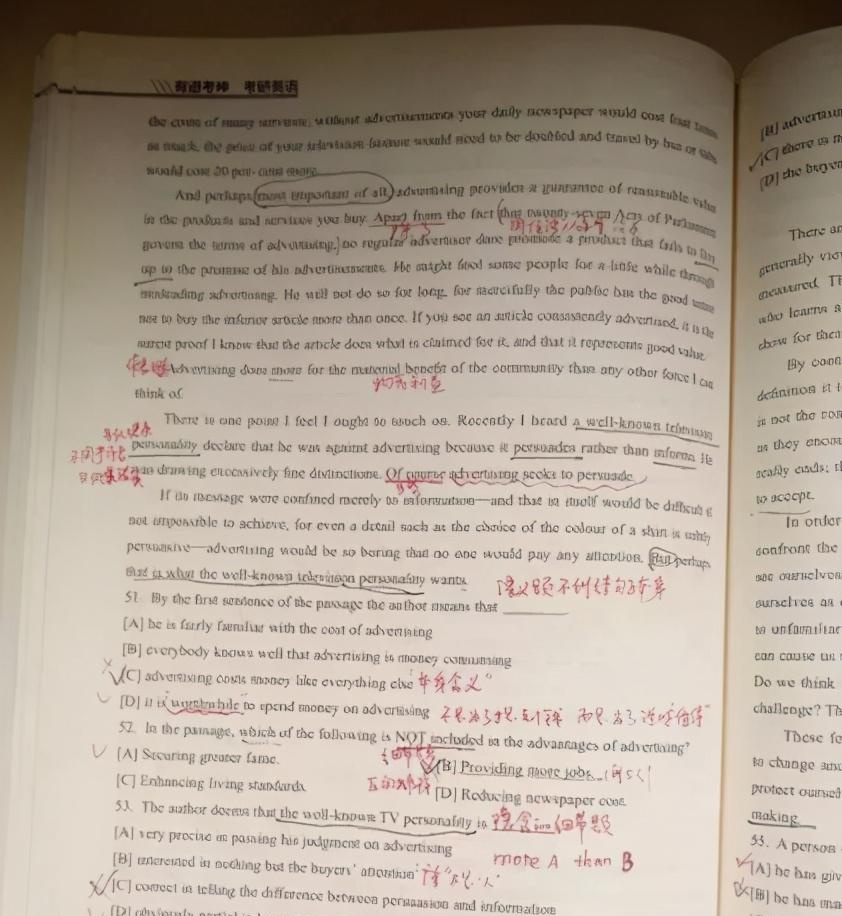 有道考神 考研英语
the costs of many services, without advertisements your daily newspaper would cost four times
as much, the price of your television licence would need to be doubled and travel by bus or tube
would cost 20 per cent more.
And perhaps most important of all, advertising provides a guarantee of reasonable value
in the products and services you buy. Apart from the fact that twenty-seven Acts of Parliament
govern the terms of advertising, no regular advertiser dare promote a product that fails to live
up to the promise of his advertisements. He might fool some people for a little while through
misleading advertising. He will not do so for long, for mercifully the public has the good sense
not to buy the inferior article more than once. If you see an article consistently advertised, it is the
surest proof I know that the article does what is claimed for it, and that it represents good value.
Advertising does more for the material benefit of the community than any other force I can
物质利益
think of.
There is one point I feel I ought to touch on. Recently I heard a well-known television
personality declare that he was against advertising because it persuades rather than informs. He
was drawing excessively fine distinctions. Of course advertising seeks to persuade.
If its message were confined merely to information—and that in itself would be difficult if
not impossible to achieve, for even a detail such as the choice of the colour of a shirt is subtly
persuasive—advertising would be so boring that no one would pay any attention. But perhaps
that is what the well-known television personality wants.
51. By the first sentence of the passage the author means that
[A] he is fairly familiar with the cost of advertising
[B] everybody knows well that advertising is money consuming
[C] advertising costs money like everything else "本身含义"
[D] it is worthwhile to spend money on advertising
52. In the passage, which of the following is NOT included in the advantages of advertising?
[A] Securing greater fame.
[B] Providing more jobs.
[C] Enhancing living standards.
[D] Reducing newspaper cost.
53. The author deems that the well-known TV personality is
[A] very precise in passing his judgment on advertising
more A than B
[B] interested in nothing but the buyers' attention
[C] correct in telling the difference between persuasion and information
[B] advertisin
[C] there is n
[D] the buyer
There ar
generally viev
measured. Th
who learns a
show for then
By cont
definition it i
is not the con
as they encou
to accept.
In order
confront the
see ourselves
ourselves as
to unfamiliar
can cause us
Do we think
challenge? Th
These fe
to change and
protect oursel
making.
55. A person
[A] he has giv
[B] he has ma